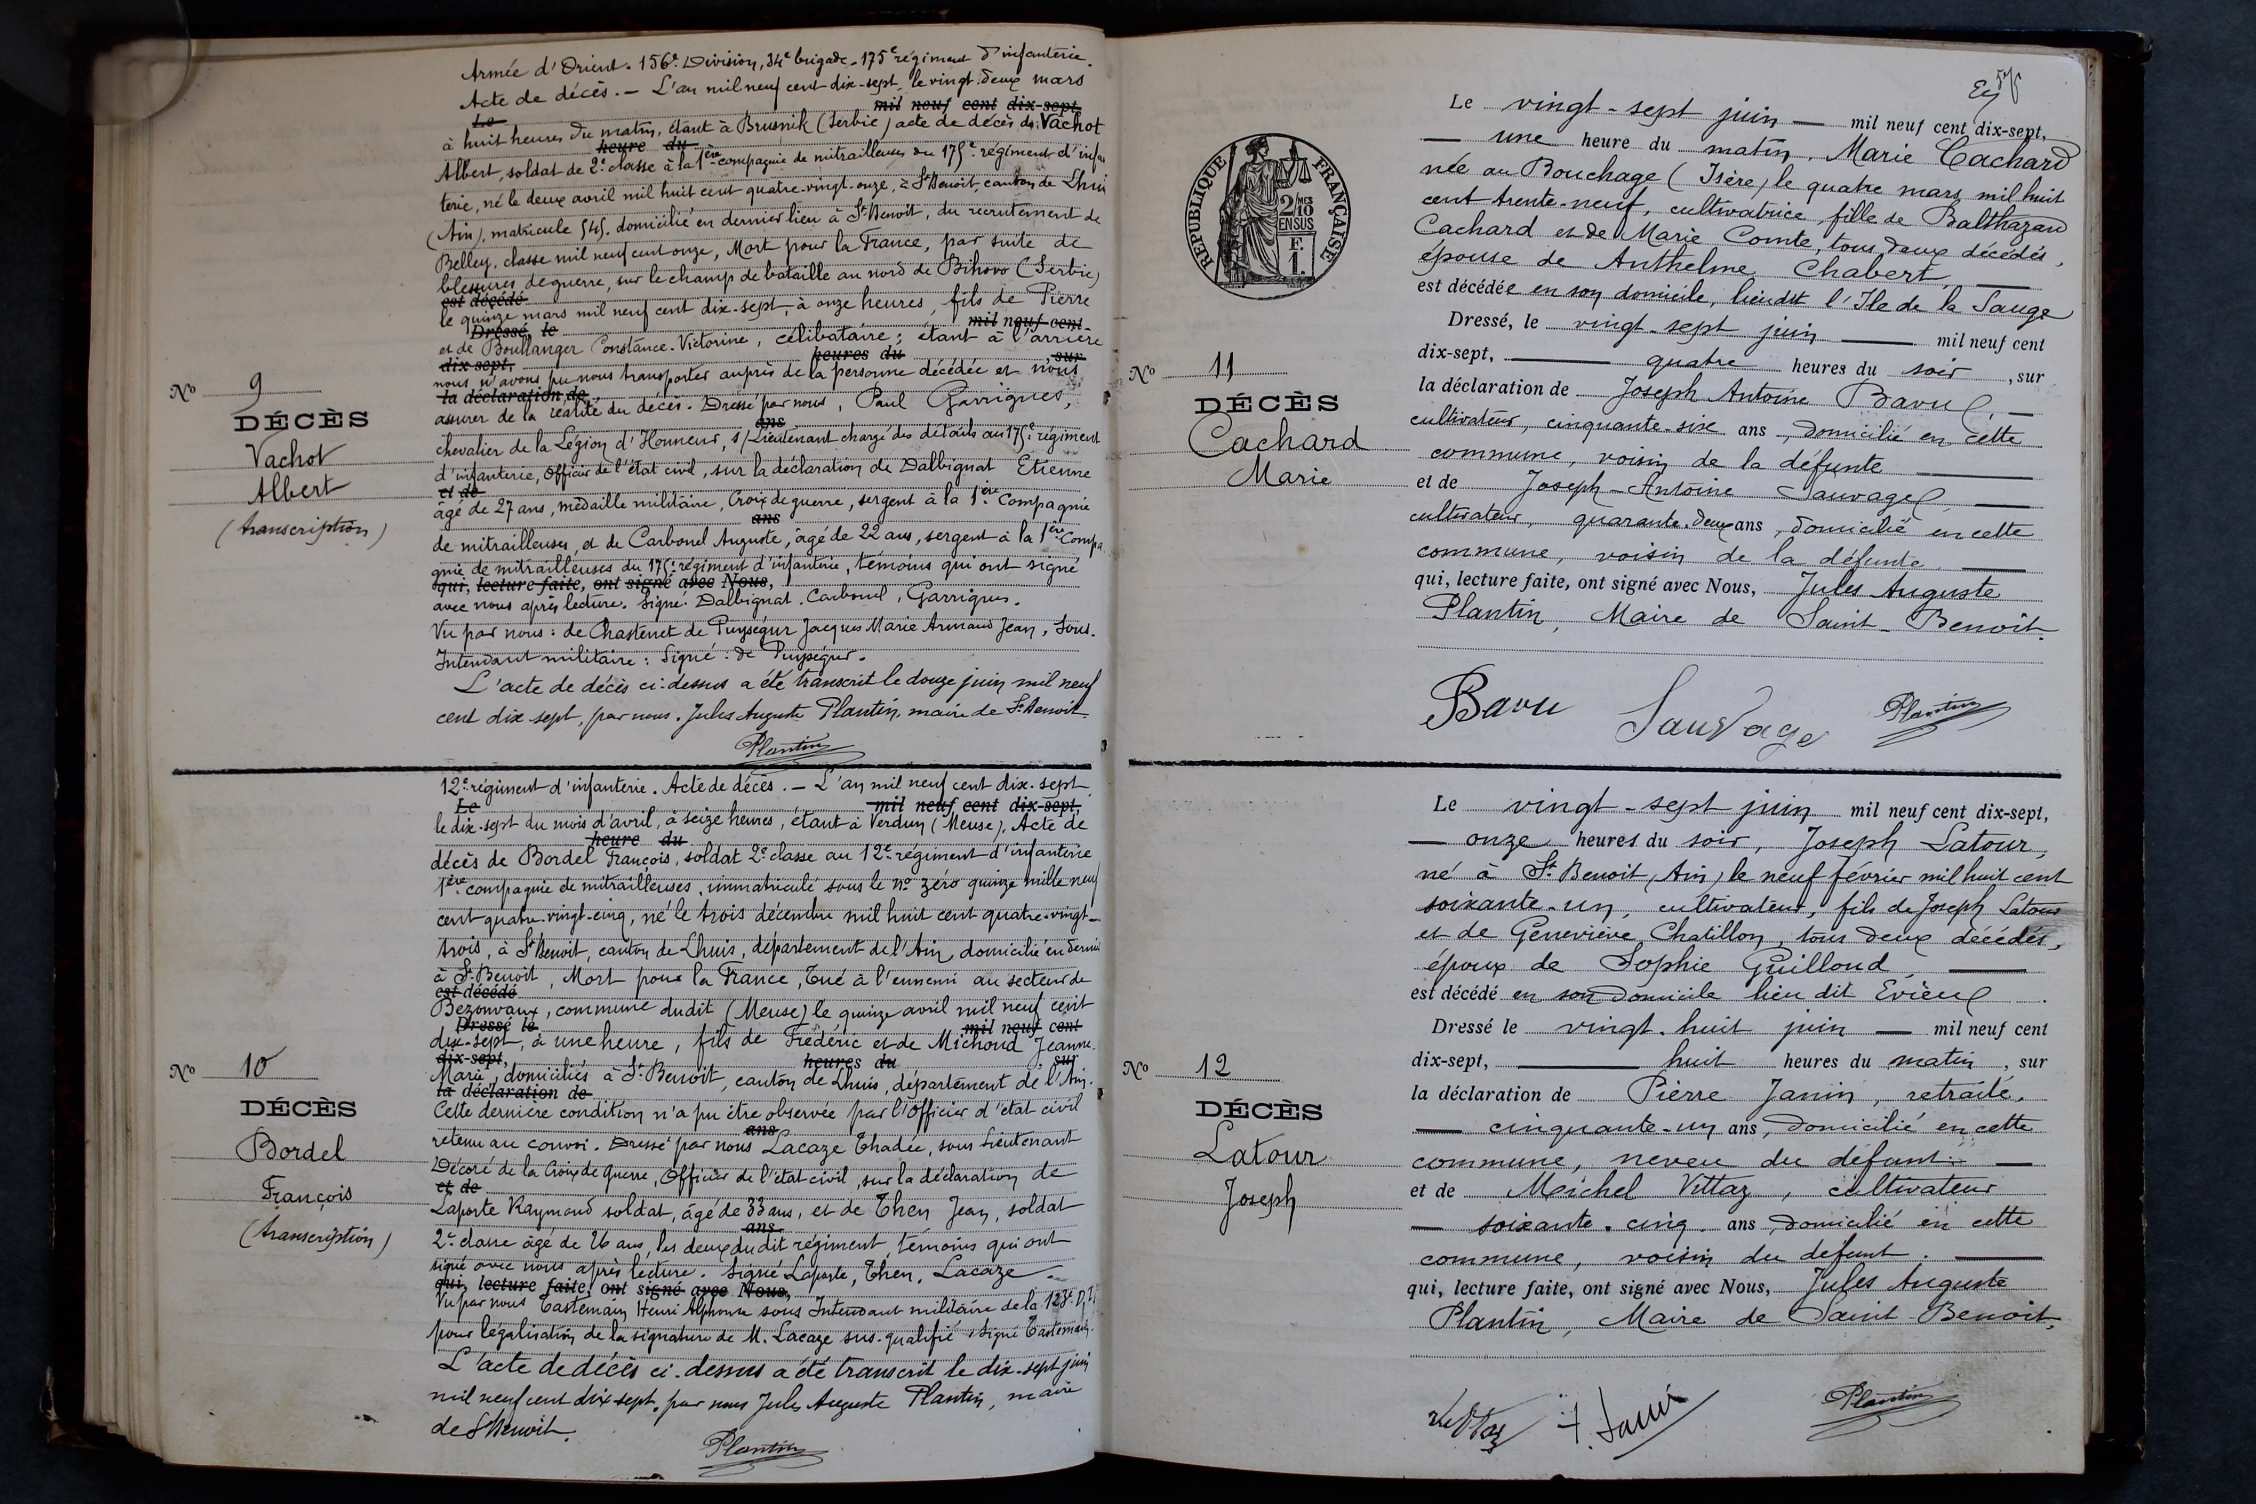 Armée d'Orient. 156e Division, 34e brigade. 175e régiment d'infanterie.
Acte de décès. — L'an mil neuf cent dix-sept, le vingt-deux mars
Le mil neuf cent dix-sept,
à huit heures du matin, étant à Brusnik (Serbie) acte de décès de Vachot
heure du
Albert, soldat de 2e classe à la 1ère compagnie de mitrailleuses du 175e régiment d'infan
terie, né le deux avril mil huit cent quatre-vingt-onze, à St Benoit, canton de Lhuis
(Ain), matricule 545. domicilié en dernier lieu à St Benoit, du recrutement de
Belley, classe mil neuf cent onze, Mort pour la France, par suite de
blessures de guerre, sur le champ de bataille au nord de Bihovo (Serbie)
est décédé
le quinze mars mil neuf cent dix-sept, à onze heures, fils de Pierre
Dressé, le mil neuf cent
et de Boullanger Constance-Victorine, célibataire; étant à l'arrière
dix-sept, heures du , sur
nous n'avons pu nous transporter auprès de la personne décédée et nous
la déclaration de
assurer de la réalité du décès. Dressé par nous, Paul Garrigues,
ans
chevalier de la Légion d'Honneur, s/Lieutenant chargé des détails au 175e régiment
d'infanterie, Officier de l'état civil, sur la déclaration de Dalbignat Etienne
et de
âgé de 27 ans, médaille militaire, Croix de guerre, sergent à la 1ère Compagnie
ans
de mitrailleuses, et de Carbonel Auguste, âgé de 22 ans, sergent à la 1ère Compa
gnie de mitrailleuses du 175e régiment d'infanterie, témoins qui ont signé
qui, lecture faite, ont signé avec Nous,
avec nous après lecture. Signé: Dalbignat. Carbonel, Garrigues.
Vu par nous: de Chastenet de Puységur Jacques Marie Armand Jean, Sous-
Intendant militaire: Signé: de Puységur.
L'acte de décès ci-dessus a été transcrit le douze juin mil neuf
cent dix sept, par nous. Jules Auguste Plantin, maire de St Benoit.
Plantin
No 9
DÉCÈS
Vachot
Albert
(transcription)
12e régiment d'infanterie. Acte de décès. — L'an mil neuf cent dix-sept
Le mil neuf cent dix-sept,
le dix-sept du mois d'avril, à seize heures, étant à Verdun (Meuse). Acte de
heure du
décès de Bordel François, soldat 2e classe au 12e régiment d'infanterie
1ère compagnie de mitrailleuses, immatriculé sous le no zéro quinze mille neuf
cent quatre-vingt-cinq, né le trois décembre mil huit cent quatre-vingt-
trois, à St Benoit, canton de Lhuis, département de l'Ain, domicilié en dernier
à St Benoit, Mort pour la France, tué à l'ennemi au secteur de
est décédé
Bezonvaux, commune dudit (Meuse) le quinze avril mil neuf cent
Dressé le mil neuf cent
dix-sept, à une heure, fils de Frédéric et de Michoud Jeanne-
dix-sept, heures du , sur
Marie, domiciliés à St Benoit, canton de Lhuis, département de l'Ain.
la déclaration de
Cette dernière condition n'a pu être observée par l'Officier d'état civil
ans
retenu au convoi. Dressé par nous Lacaze Thadée, sous lieutenant
Décoré de la Croix de Guerre, Officier de l'état civil, sur la déclaration de
et de
Laporte Raymond soldat, âgé de 33 ans, et de Then Jean, soldat
ans
2e classe âgé de 26 ans, les deux dudit régiment, témoins qui ont
signé avec nous après lecture. Signé Laporte, Then, Lacaze.
qui, lecture faite, ont signé avec Nous,
Vu par nous Castemain Henri Alphonse sous Intendant militaire de la 123e
pour légalisation de la signature de M. Lacaze sus-qualifié signé Castemain.
L'acte de décès ci-dessus a été transcrit le dix-sept juin
mil neuf cent dix sept, par nous Jules Auguste Plantin, maire
de St Benoit.
Plantin
No 10
DÉCÈS
Bordel
François
(transcription)
RÉPUBLIQUE FRANÇAISE
2 MES
10
EN SUS
F.
1.
No 11
DÉCÈS
Cachard
Marie
Le vingt-sept juin — mil neuf cent dix-sept,
— une heure du matin. Marie Cachard
née au Bouchage (Isère) le quatre mars mil huit
cent trente-neuf, cultivatrice, fille de Balthazard
Cachard et de Marie Comte, tous deux décédés,
épouse de Anthelme Chabert, —
est décédée en son domicile, lieu dit l'Ile de la Sauge
Dressé, le vingt-sept juin — mil neuf cent
dix-sept, — quatre heures du soir , sur
la déclaration de Joseph Antoine Bavuz, —
cultivateur, cinquante-six ans, domicilié en cette
commune, voisin de la défunte —
et de Joseph-Antoine Sauvage, —
cultivateur, quarante-deux ans, domicilié en cette
commune, voisin de la défunte. —
qui, lecture faite, ont signé avec Nous, Jules Auguste
Plantin, Maire de Saint-Benoit.
Bavu Sauvage Plantin
No 12
DÉCÈS
Latour
Joseph
Le vingt-sept juin mil neuf cent dix-sept,
— onze heures du soir, Joseph Latour,
né à St Benoit (Ain) le neuf février mil huit cent
soixante-un, cultivateur, fils de Joseph Latour
et de Geneviève Chatillon, tous deux décédés,
époux de Sophie Guilloud, —
est décédé en son domicile lieu dit Evieu
Dressé le vingt-huit juin — mil neuf cent
dix-sept, — huit heures du matin , sur
la déclaration de Pierre Janin, retraité,
— cinquante-un ans, domicilié en cette
commune, neveu du défunt —
et de Michel Vittaz, cultivateur
— soixante-cinq ans, domicilié en cette
commune, voisin du défunt. —
qui, lecture faite, ont signé avec Nous, Jules Auguste
Plantin, Maire de Saint-Benoit.
Plantin